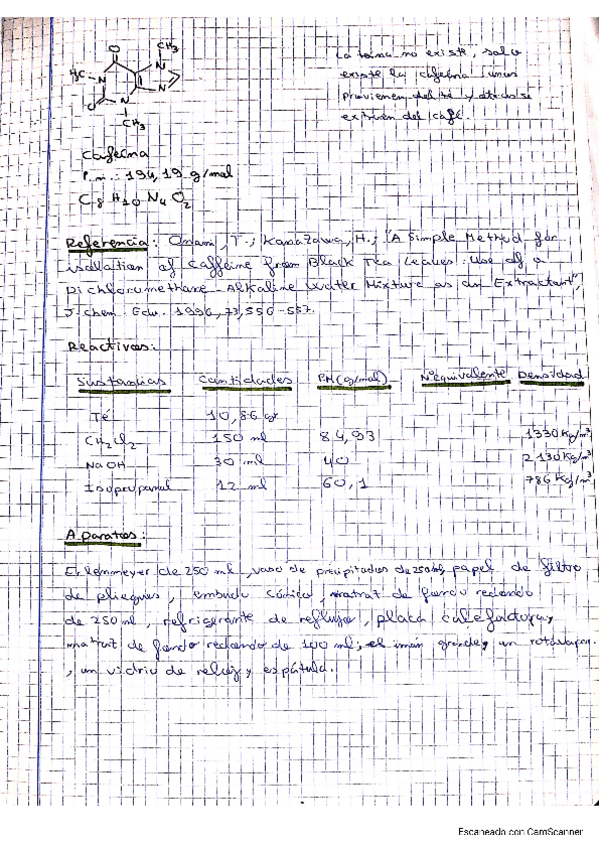 O
CH₃
H₃C
N
N
O
N
N
CH₃
La teína no existe, solo
existe la cafeína unas
provienen del té y otras se
extraen del café.
Cafeína
P.m.: 194,19 g/mol
C₈ H₁₀ N₄ O₂
Referencia: Onami, T.; Kanazawa, H.; "A Simple Method for
isolation of Caffeine from Black Tea Leaves: Use of a
Dichloromethane - Alkaline Water Mixture as an Extractant",
J. chem. Edu. 1996, 73, 556-557.
Reactivos:
Sustancias Cantidades PM(g/mol) Nº equivalente Densidad
Té 10,86 gr
CH₂Cl₂ 150 ml 84,93 1330 Kg/m³
NaOH 30 ml 40 2130 Kg/m³
Isopropanol 12 ml 60,1 786 Kg/m³
Aparatos:
Erlenmeyer de 250 ml, vaso de precipitados de 250 ml, papel de filtro
de pliegues, embudo cónico, matraz de fondo redondo
de 250 ml, refrigerante de reflujo, placa calefactora,
matraz de fondo redondo de 100 ml, el imán grande y un rotavapor.
, un vidrio de reloj y espátula.
Escaneado con CamScanner